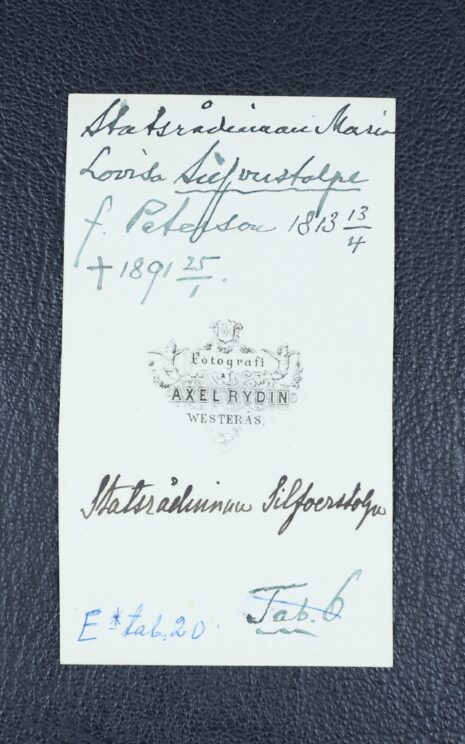 Statsrådinnan Maria
Lovisa Silfverstolpe
f. Peterson 1813 13/4
† 1891 25/1.
Fotografi
af
AXEL RYDIN
WESTERÅS.
Statsrådinnan Silfverstolpe
Tab. 6
E* tab. 20